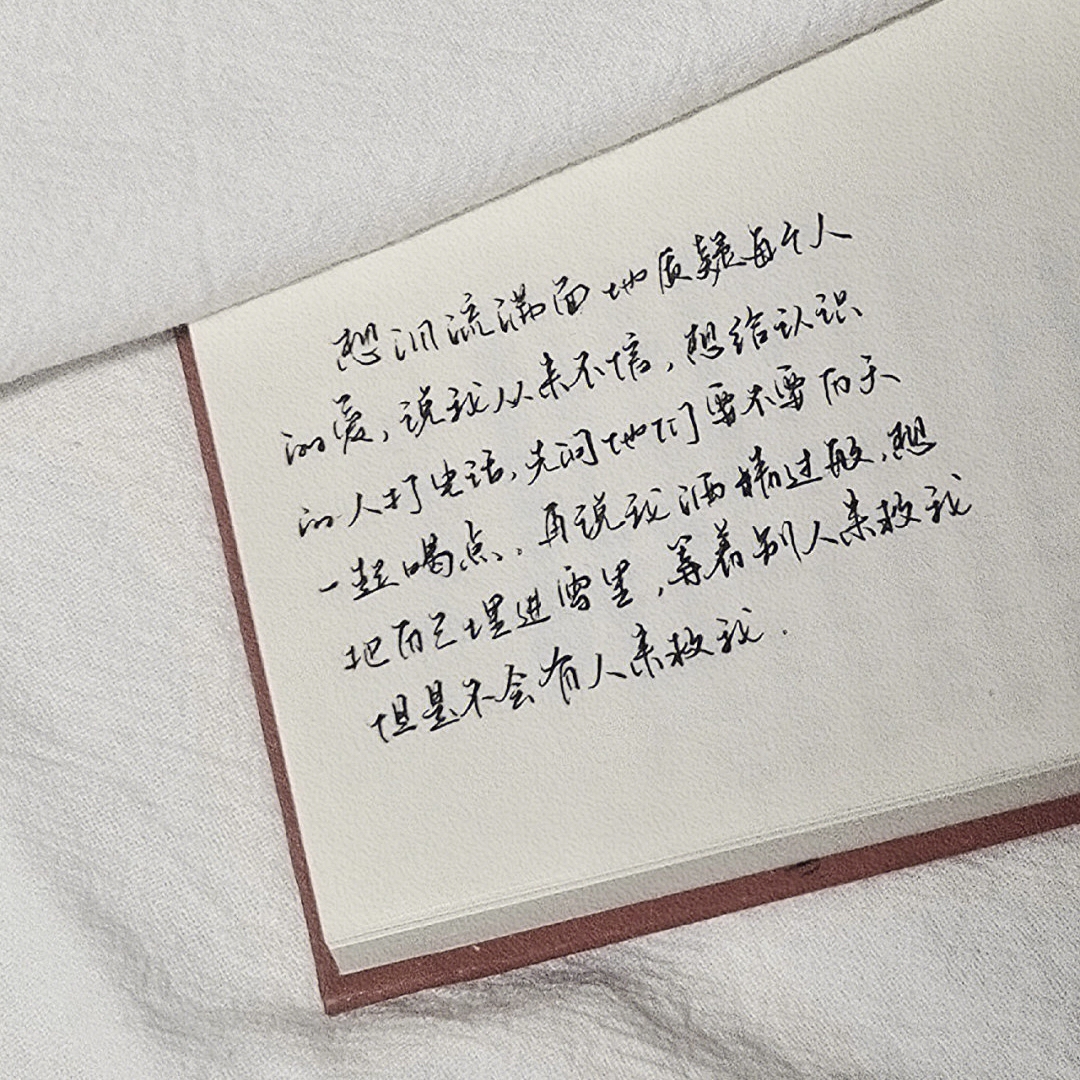 想泪流满面地质疑每个人
的爱，说我从来不信，想给认识
的人打电话，先问他们要不要百天
一起喝点，再说我酒精过敏，想
把自己埋进雪里，等着别人来救我
但是不会有人来救我.